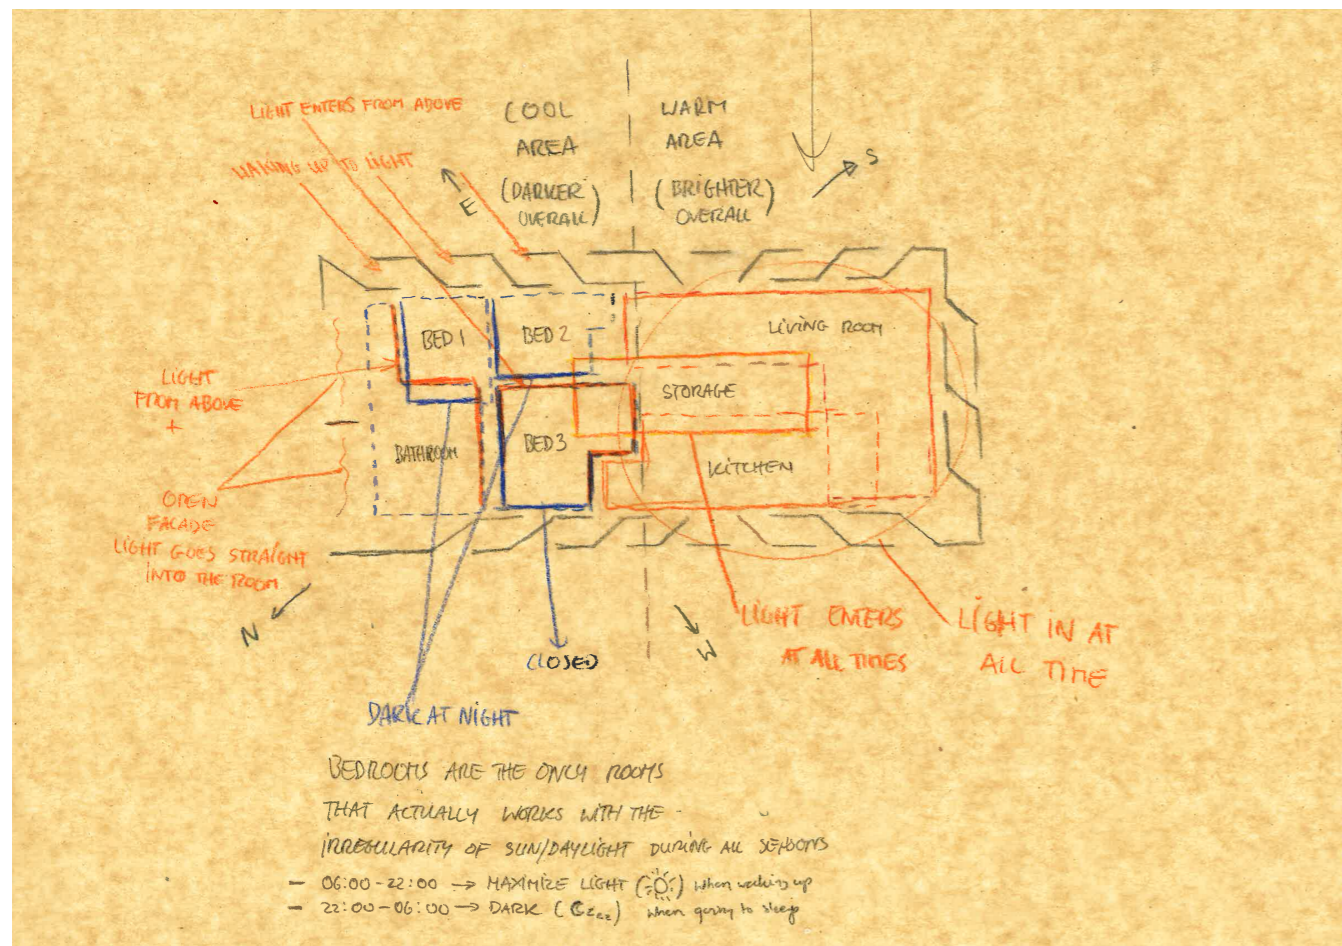 LIGHT ENTERS FROM ABOVE
WAKING UP TO LIGHT
COOL
AREA
(DARKER
OVERALL)
WARM
AREA
(BRIGHTER
OVERALL)
E
S
BED 1
BED 2
LIVING ROOM
STORAGE
BATHROOM
BED 3
KITCHEN
LIGHT
FROM ABOVE
+
OPEN
FACADE
LIGHT GOES STRAIGHT
INTO THE ROOM
N
W
CLOSED
LIGHT ENTERS
AT ALL TIMES
LIGHT IN AT
ALL TIME
DARK AT NIGHT
BEDROOMS ARE THE ONLY ROOMS
THAT ACTUALLY WORKS WITH THE
IRREGULARITY OF SUN/DAYLIGHT DURING ALL SEASONS
- 06:00-22:00 → MAXIMIZE LIGHT ( ) when waking up
- 22:00-06:00 → DARK ( zzz) when going to sleep